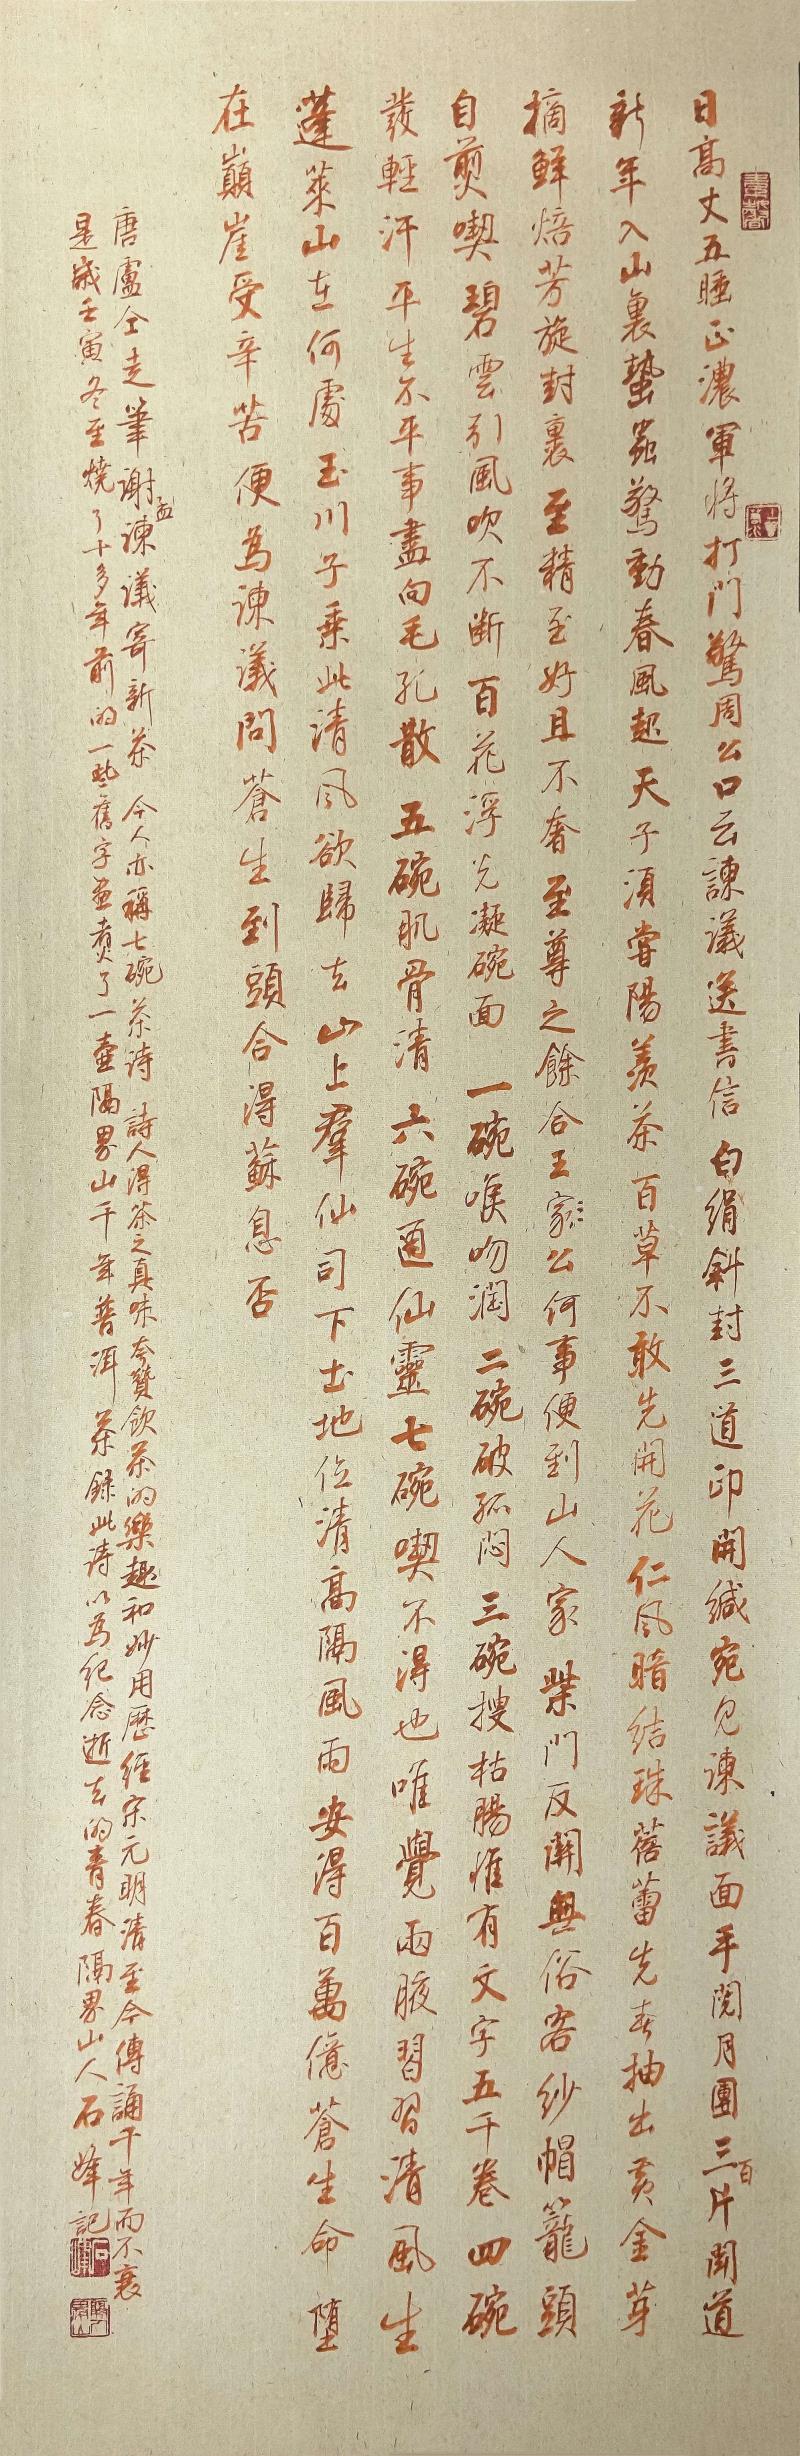 日高丈五睡正濃軍將打門驚周公口云諫議送書信白絹斜封三道印開緘宛見諫議面手閱月團三百片聞道
新年入山裏蟄蟲驚動春風起天子須嘗陽羨茶百草不敢先開花仁風暗結珠蓓蕾先春抽出黃金芽
摘鮮焙芳旋封裹至精至好且不奢至尊之餘合王公何事便到山人家柴門反關無俗客紗帽籠頭
自煎喫碧雲引風吹不斷百花浮光凝碗面一碗喉吻潤二碗破孤悶三碗搜枯腸惟有文字五千卷四碗
發輕汗平生不平事盡向毛孔散五碗肌骨清六碗通仙靈七碗喫不得也唯覺兩腋習習清風生
蓬萊山在何處玉川子乘此清風欲歸去山上羣仙司下土地位清高隔風雨安得百萬億蒼生命墮
在巔崖受辛苦便為諫議問蒼生到頭合得蘇息否
唐盧仝走筆謝孟諫議寄新茶今人亦稱七碗茶詩詩人得茶之真味夸贊飲茶的樂趣和妙用歷經宋元明清至今傳誦千年而不衰
是歲壬寅冬至燒了十多年前的一些舊字畫煮了一壺隔界山千年普洱茶錄此詩以為紀念逝去的青春隔界山人石峰記